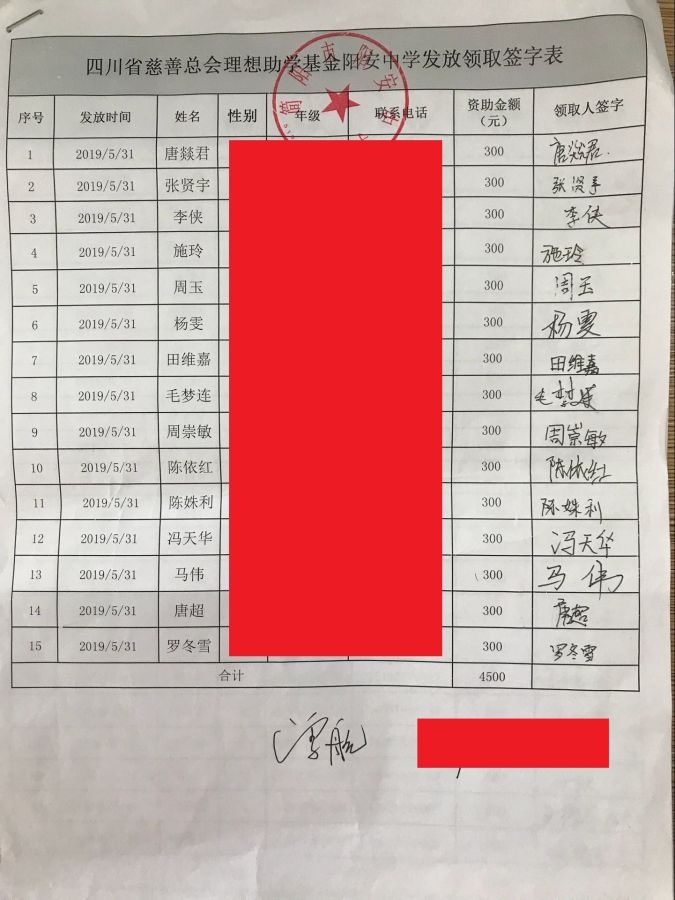 四川省慈善总会理想助学基金阳安中学发放领取签字表
简阳市阳安中
序号 发放时间 姓名 性别 年级 联系电话 资助金额（元） 领取人签字
1 2019/5/31 唐燚君 300 唐燚君.
2 2019/5/31 张贤宇 300 张贤宇
3 2019/5/31 李侠 300 李侠
4 2019/5/31 施玲 300 施玲
5 2019/5/31 周玉 300 周玉
6 2019/5/31 杨雯 300 杨雯
7 2019/5/31 田维嘉 300 田维嘉
8 2019/5/31 毛梦连 300 毛梦连
9 2019/5/31 周崇敏 300 周崇敏
10 2019/5/31 陈依红 300 陈依红
11 2019/5/31 陈姝利 300 陈姝利
12 2019/5/31 冯天华 300 冯天华
13 2019/5/31 马伟 300 马伟
14 2019/5/31 唐超 300 唐超
15 2019/5/31 罗冬雪 300 罗冬雪
合计 4500